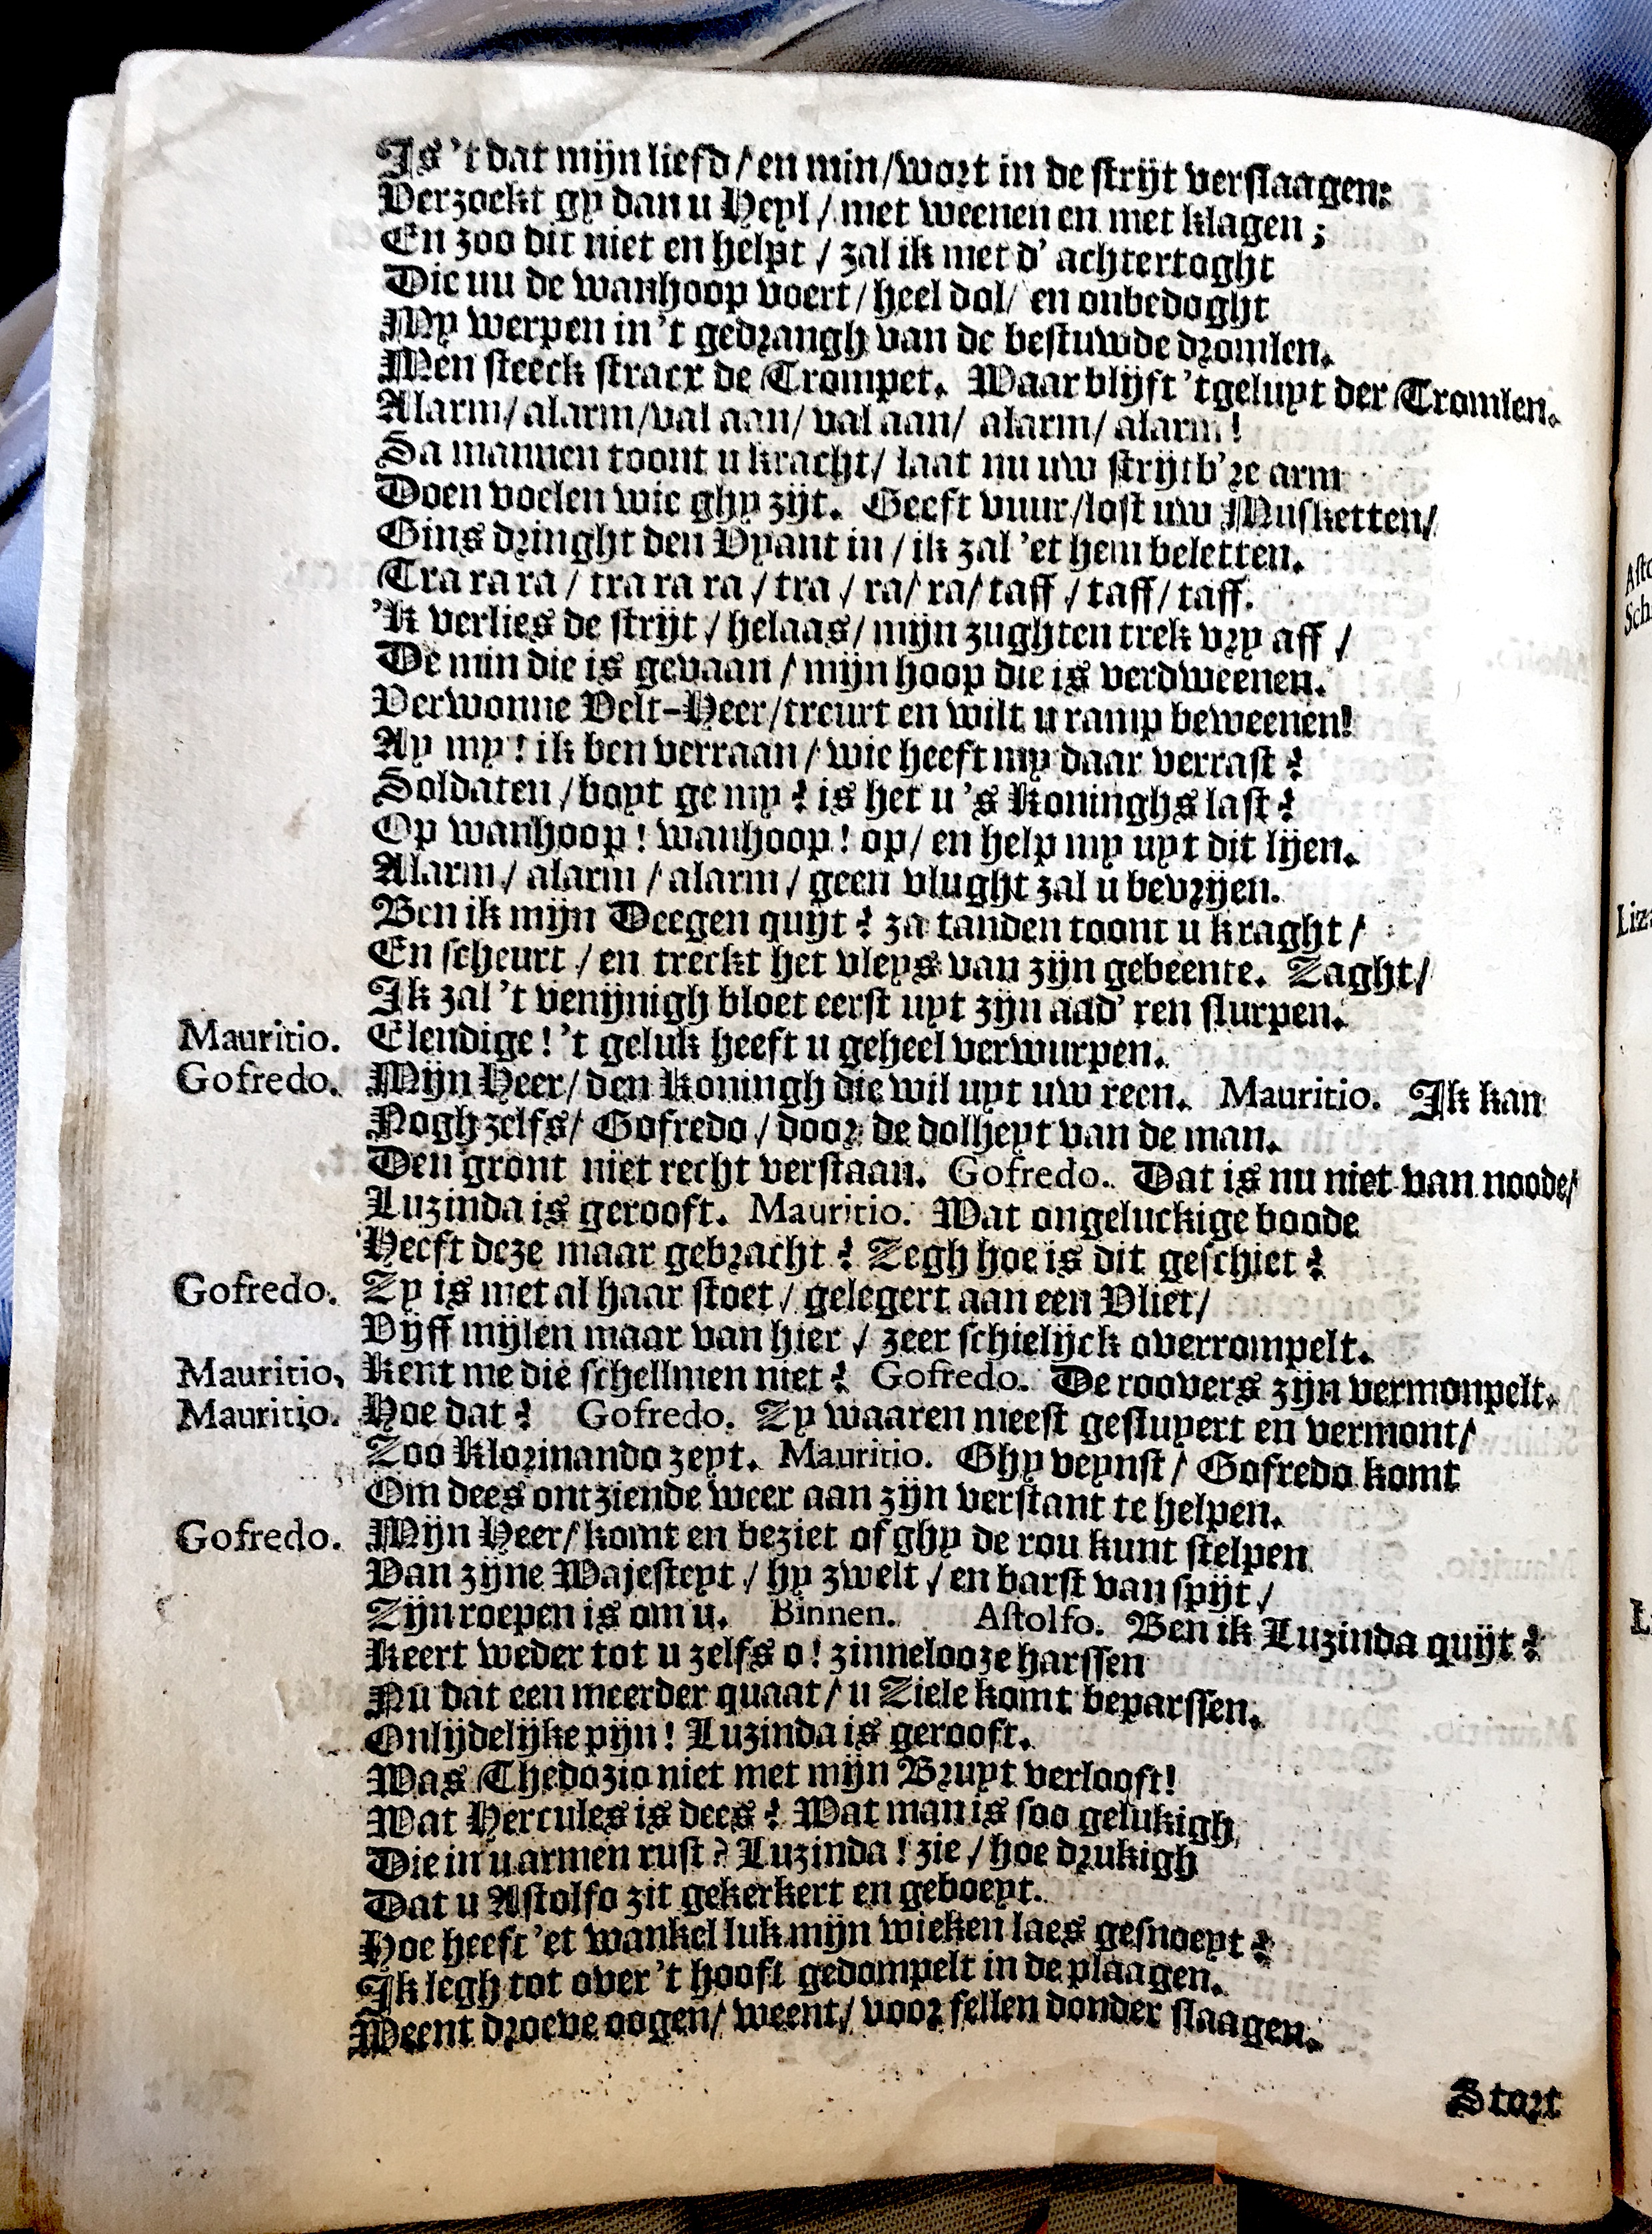 Is 't dat mijn liefd / en min / wort in de strijt verslaagen:
Verzoekt gy dan u Heyl / met weenen en met klagen ;
En zoo dit niet en helpt / zal ik met d' achtertoght
Die nu de wanhoop voert / heel dol / en onbedoght
My werpen in 't gedrangh van de bestuwde dromlen.
Men steeck stracx de Trompet. Waar blijft 't geluyt der Tromlen.
Alarm / alarm / val aan / val aan / alarm / alarm !
Sa mannen toont u kracht / laat nu uw strijtb're arm
Doen voelen wie ghy zijt. Geeft vuur / lost uw Musketten /
Gins dringht den Vyant in / ik zal 'et hem beletten.
Tra ra ra / tra ra ra / tra / ra / ra / taff / taff / taff.
'K verlies de strijt / helaas / mijn zughten trek vry aff /
De min die is gevaan / mijn hoop die is verdweenen.
Verwonne Velt-Heer / treurt en wilt u ramp beweenen!
Ay my ! ik ben verraan / wie heeft my daar verrast ?
Soldaten / boyt ge my ? is het u 's Koninghs last ?
Op wanhoop ! wanhoop ! op / en help my uyt dit lijen.
Alarm / alarm / alarm / geen vlught zal u bevrijen.
Ben ik mijn Deegen quijt ? za tanden toont u kraght /
En scheurt / en treckt het vleys van zijn gebeente. Zaght /
Ik zal 't venijnigh bloet eerst uyt zijn aad'ren slurpen.
Mauritio. Elendige ! 't geluk heeft u geheel verwurpen.
Gofredo. Mijn Heer / den Koningh die wil uyt uw reen. Mauritio. Ik kan
Nogh zelfs / Gofredo / door de dolheyt van de man.
Den gront niet recht verstaan. Gofredo. Dat is nu niet van noode /
Luzinda is gerooft. Mauritio. Wat ongeluckige boode
Heeft deze maar gebracht ? Zegh hoe is dit geschiet ?
Gofredo. Zy is met al haar stoet / gelegert aan een Vliet /
Vijff mijlen maar van hier / zeer schielijck overrompelt.
Mauritio, Kent me die schellmen niet ? Gofredo. De roovers zijn vermonpelt.
Mauritio. Hoe dat ? Gofredo. Zy waaren meest gesluyert en vermont /
Zoo Klorinando zeyt. Mauritio. Ghy veynst / Gofredo komt
Om dees ontziende weer aan zijn verstant te helpen.
Gofredo. Mijn Heer / komt en beziet of ghy de rou kunt stelpen
Van zijne Majesteyt / hy zwelt / en barst van spijt /
Zijn roepen is om u. Binnen. Astolfo. Ben ik Luzinda quijt ?
Keert weder tot u zelfs o ! zinnelooze harssen
Nu dat een meerder quaat / u Ziele komt beparssen.
Onlijdelijke pijn ! Luzinda is gerooft.
Was Thedozio niet met mijn Bruyt verlooft!
Wat Hercules is dees ? Wat man is soo gelukigh
Die in u armen rust ? Luzinda ! zie / hoe drukigh
Dat u Astolfo zit gekerkert en geboeyt.
Hoe heeft 'et wankel luk mijn wieken laes gesnoeyt ?
Ik legh tot over 't hooft gedompelt in de plaagen.
Weent droeve oogen / weent / voor fellen donder slaagen.
Stort